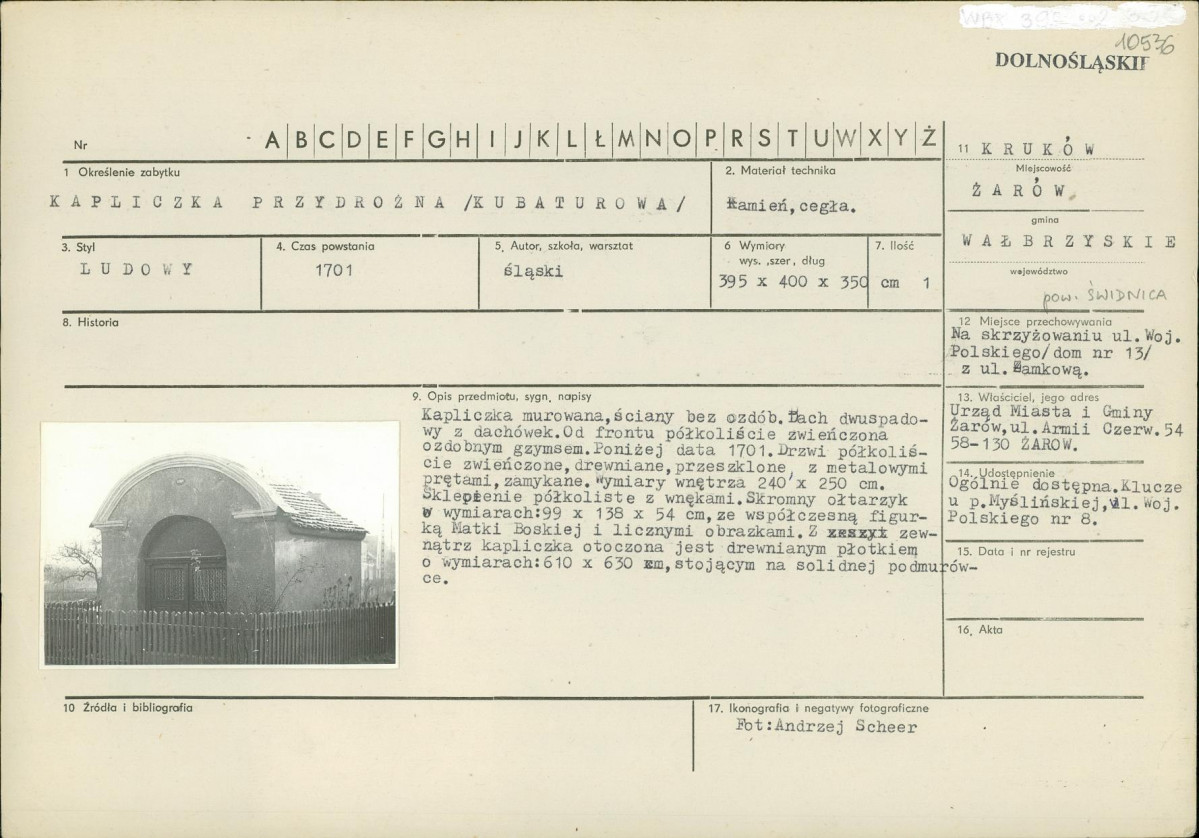 10536
DOLNOŚLĄSKIE
Nr
A B C D E F G H I J K L Ł M N O P R S T U W X Y Ż
1 Określenie zabytku
KAPLICZKA PRZYDROŻNA /KUBATUROWA/
2. Materiał technika
Kamień, cegła.
3. Styl
LUDOWY
4. Czas powstania
1701
5. Autor, szkoła, warsztat
śląski
6 Wymiary
wys. ,szer, dług
395 x 400 x 350 cm
7. Ilość
1
8. Historia
11 KRUKÓW
Miejscowość
ŻARÓW
gmina
WAŁBRZYSKIE
województwo
pow. ŚWIDNICA
12 Miejsce przechowywania
Na skrzyżowaniu ul. Woj.
Polskiego/dom nr 13/
z ul. Zamkową.
13. Właściciel, jego adres
Urząd Miasta i Gminy
Żarów, ul. Armii Czerw. 54
58-130 ŻARÓW.
14. Udostępnienie
Ogólnie dostępna. Klucze
u p. Myślińskiej, ul. Woj.
Polskiego nr 8.
15. Data i nr rejestru
16. Akta
9. Opis przedmiotu, sygn. napisy
Kapliczka murowana, ściany bez ozdób. Dach dwuspado-
wy z dachówek. Od frontu półkoliście zwieńczona
ozdobnym gzymsem. Poniżej data 1701. Drzwi półkoliś-
cie zwieńczone, drewniane, przeszklone, z metalowymi
prętami, zamykane. Wymiary wnętrza 240 x 250 cm.
Sklepienie półkoliste z wnękami. Skromny ołtarzyk
o wymiarach: 99 x 138 x 54 cm, ze współczesną figur-
ką Matki Boskiej i licznymi obrazkami. Z zew-
nątrz kapliczka otoczona jest drewnianym płotkiem
o wymiarach: 610 x 630 cm, stojącym na solidnej podmurów-
ce.
10 Źródła i bibliografia
17. Ikonografia i negatywy fotograficzne
Fot: Andrzej Scheer